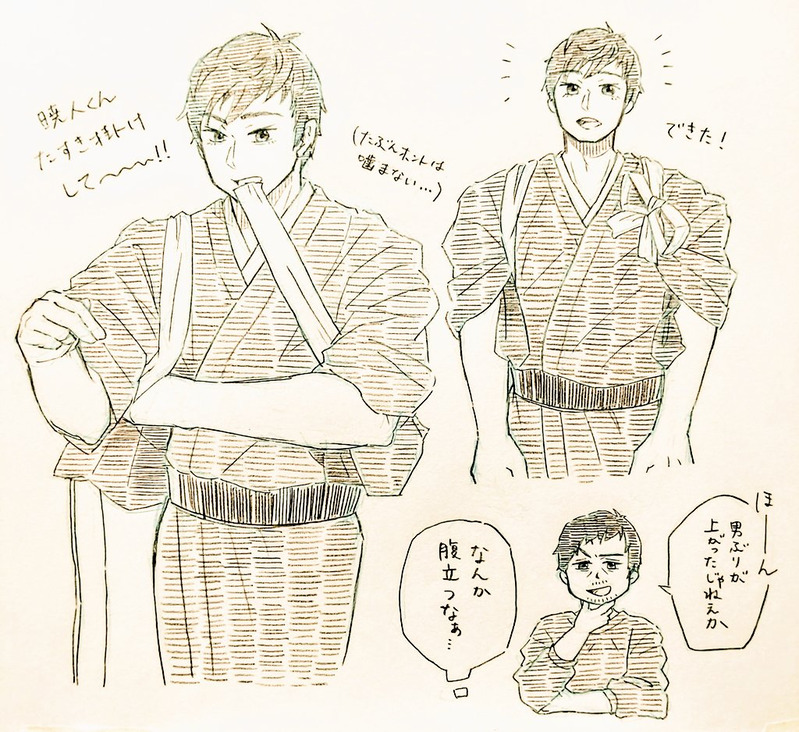 暁人くん
たすき掛け
して〜〜〜!!
(たぶんホントは
噛まない…)
できた!
ほーーん
男ぶりが
上がったじゃねぇか
なんか
腹立つなぁ…